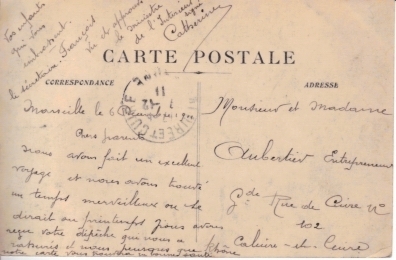 Vos enfants
qui vous
embrassent.
le secrétaire, François
Vu et approuvé
le ministre
de l'Intérieur
signé
Catherine
CARTE POSTALE
CORRESPONDANCE
ADRESSE
Marseille le 6
Chers parents
Nous avons fait un excellent
voyage et nous avons trouvé
un temps merveilleux on se
dirait au printemps. Nous avons
reçu votre dépêche qui nous a
et nous pensons que
notre carte vous trouvera en bonne santé
Monsieur et Madame
Aubertier Entrepreneur
Gde Rue de Cuire No
102
Caluire-et-Cuire